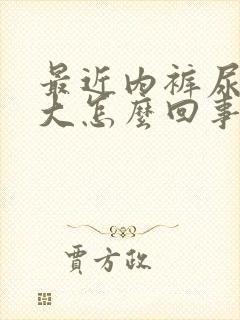 最近内裤尿
大怎麽回事
賈方政